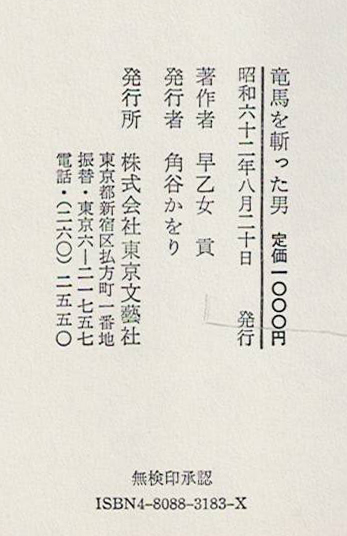 竜馬を斬った男 定価一〇〇〇円
昭和六十二年八月二十日 発行
著作者 早乙女 貢
発行者 角谷かをり
発行所 株式会社 東京文藝社
東京都新宿区払方町一番地
振替・東京六―二一七五七
電話・(二六〇)二五五〇
無検印承認
ISBN4-8088-3183-X